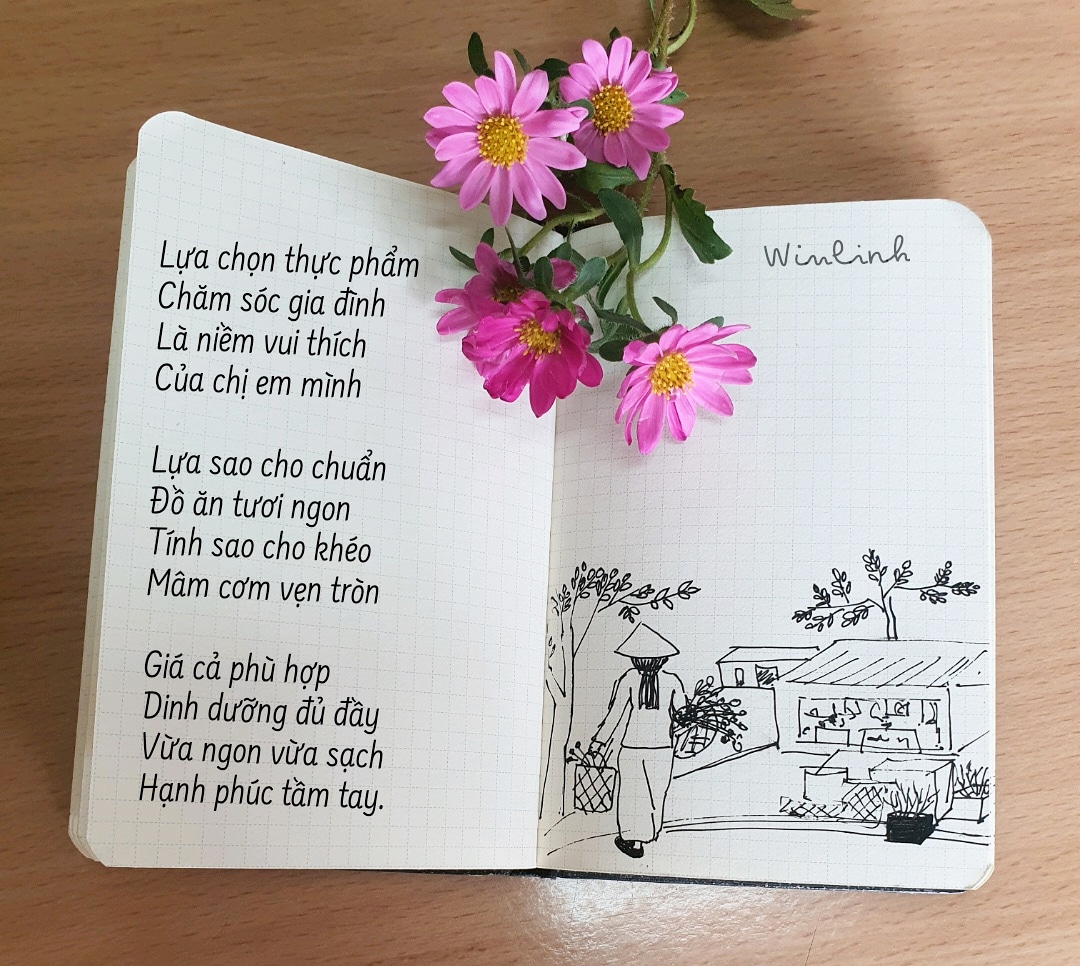 Lựa chọn thực phẩm
Chăm sóc gia đình
Là niềm vui thích
Của chị em mình
Lựa sao cho chuẩn
Đồ ăn tươi ngon
Tính sao cho khéo
Mâm cơm vẹn tròn
Giá cả phù hợp
Dinh dưỡng đủ đầy
Vừa ngon vừa sạch
Hạnh phúc tầm tay.
Winlinh